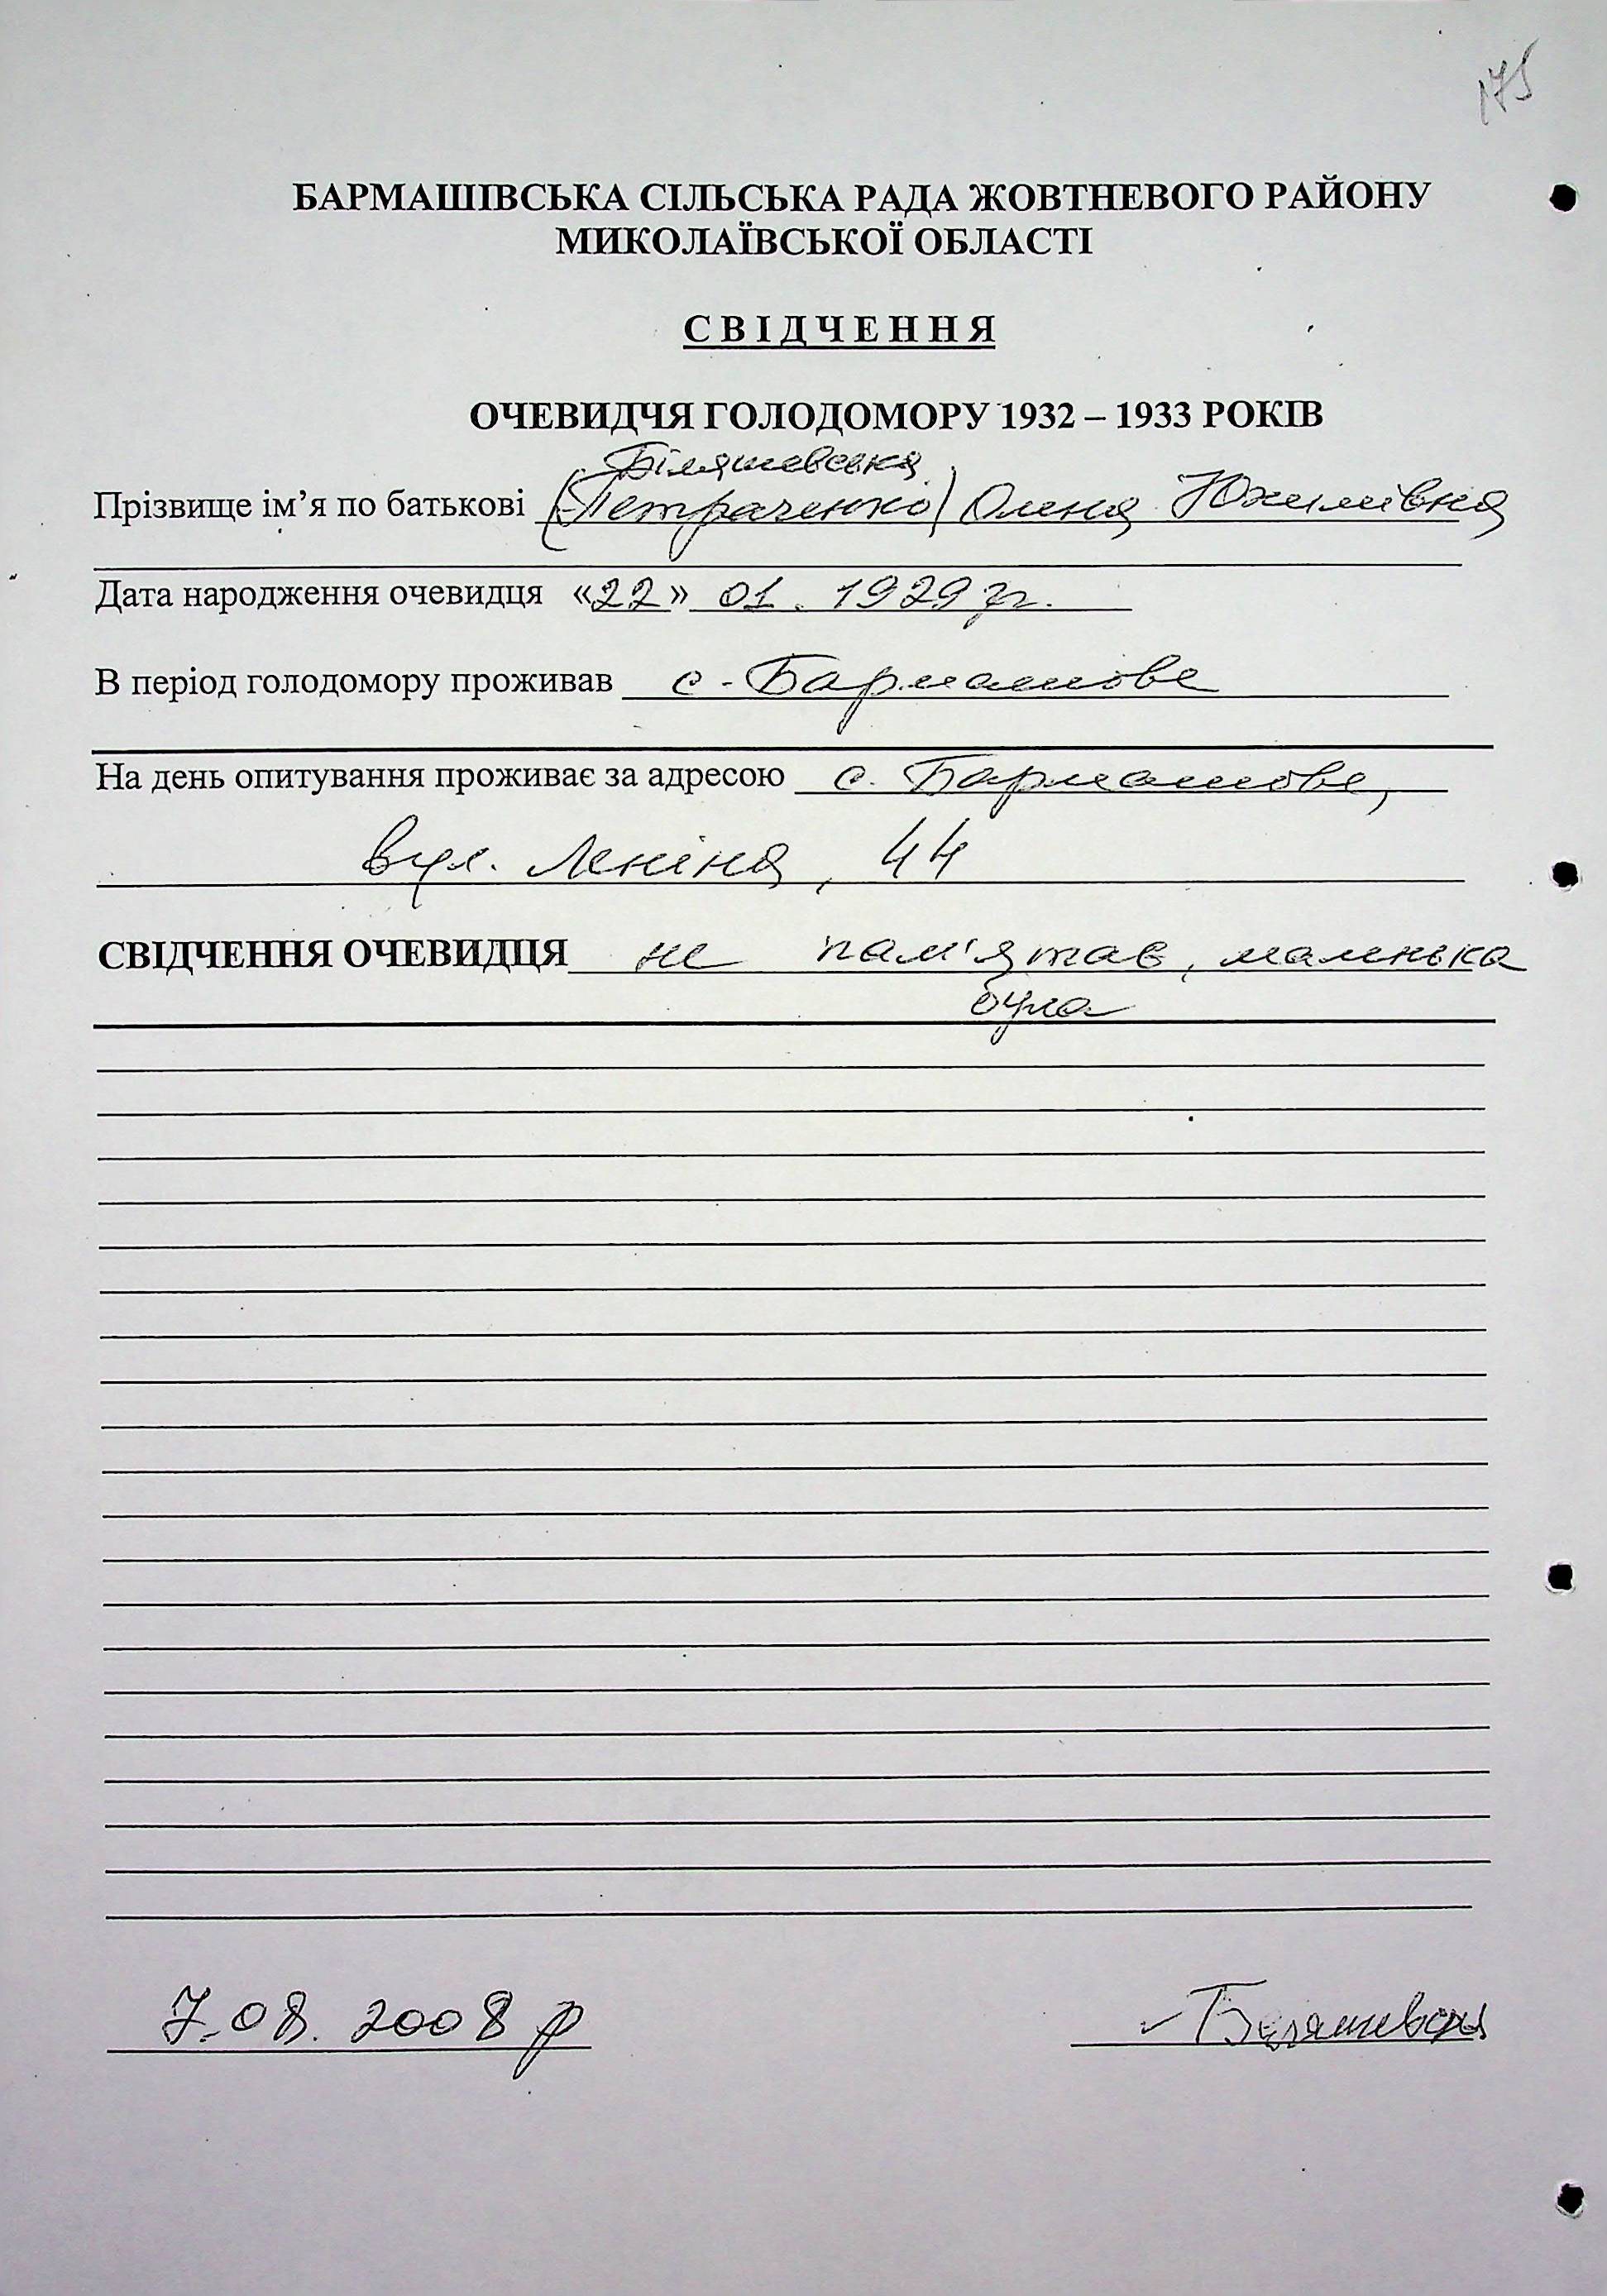 175
БАРМАШІВСЬКА СІЛЬСЬКА РАДА ЖОВТНЕВОГО РАЙОНУ
МИКОЛАЇВСЬКОЇ ОБЛАСТІ
СВІДЧЕННЯ
ОЧЕВИДЧЯ ГОЛОДОМОРУ 1932 – 1933 РОКІВ
Біляшевська
Прізвище ім’я по батькові (Петраченко) Олена Юхимівна
Дата народження очевидця «22» 01. 1929 р.
В період голодомору проживав с. Бармашове
На день опитування проживає за адресою с. Бармашове,
вул. Леніна, 44
СВІДЧЕННЯ ОЧЕВИДЦЯ не пам'ятає, маленька
була
7.08.2008 р